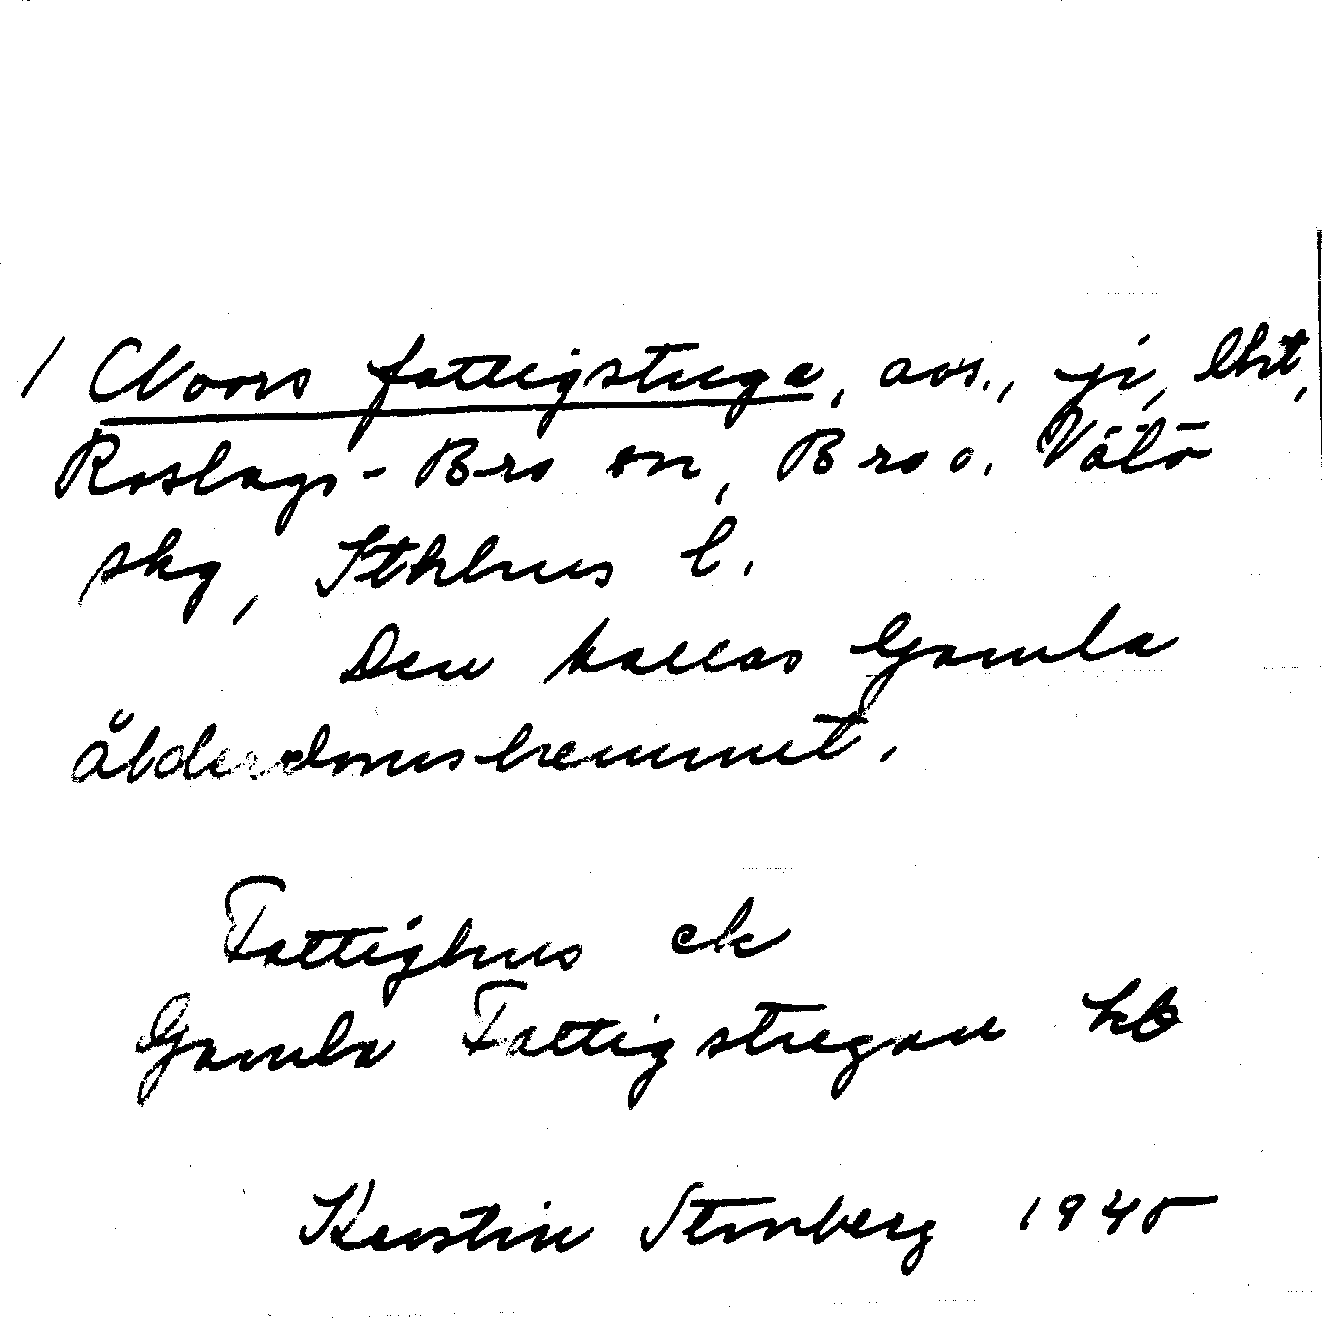 / Noors fattigstuga, avs., ji, lht,
Roslags-Bro sn, Bro o. Vätö
skg, Sthlms l.
Den kallas Gamla
ålderdomshemmet.
Fattighus ek
Gamla Fattigstugan kb
Kerstin Stenberg 1945